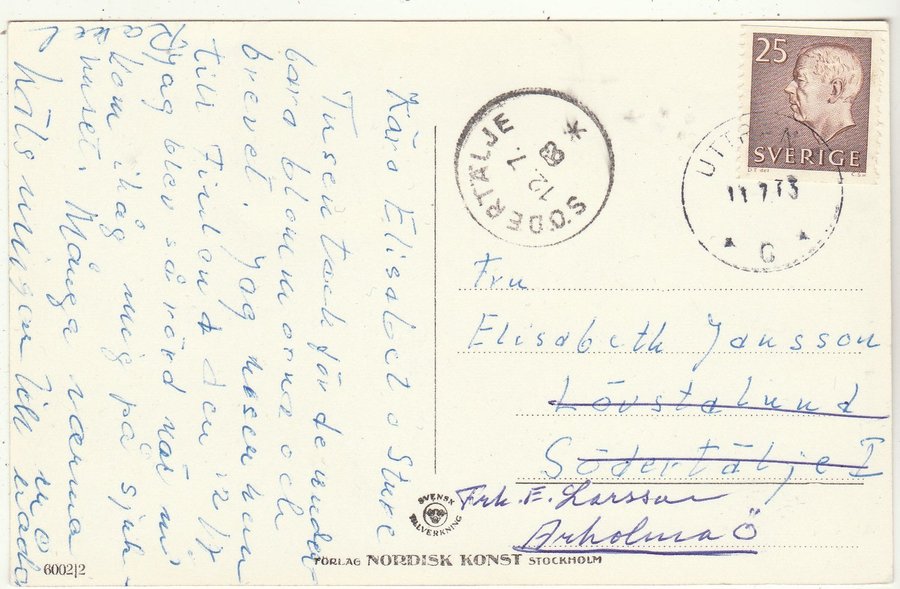 Kära Elisabet o Sture
Tusen tack för de under-
bara blommorna och
brevet. Jag reser hem
till Finland den 12/7
Jag blev så rörd när ni
kom ihåg mig på sjuk-
huset. Många varma
hälsningar till
25
SVERIGE
SÖDERTÄLJE
12.7.
11 7 63
C
Fru
Elisabeth Jansson
Lövstalund
Södertälje I
Frk. E. Larsson
Arholma Ö
SVENSK
TILLVERKNING
FÖRLAG NORDISK KONST STOCKHOLM
6002|2